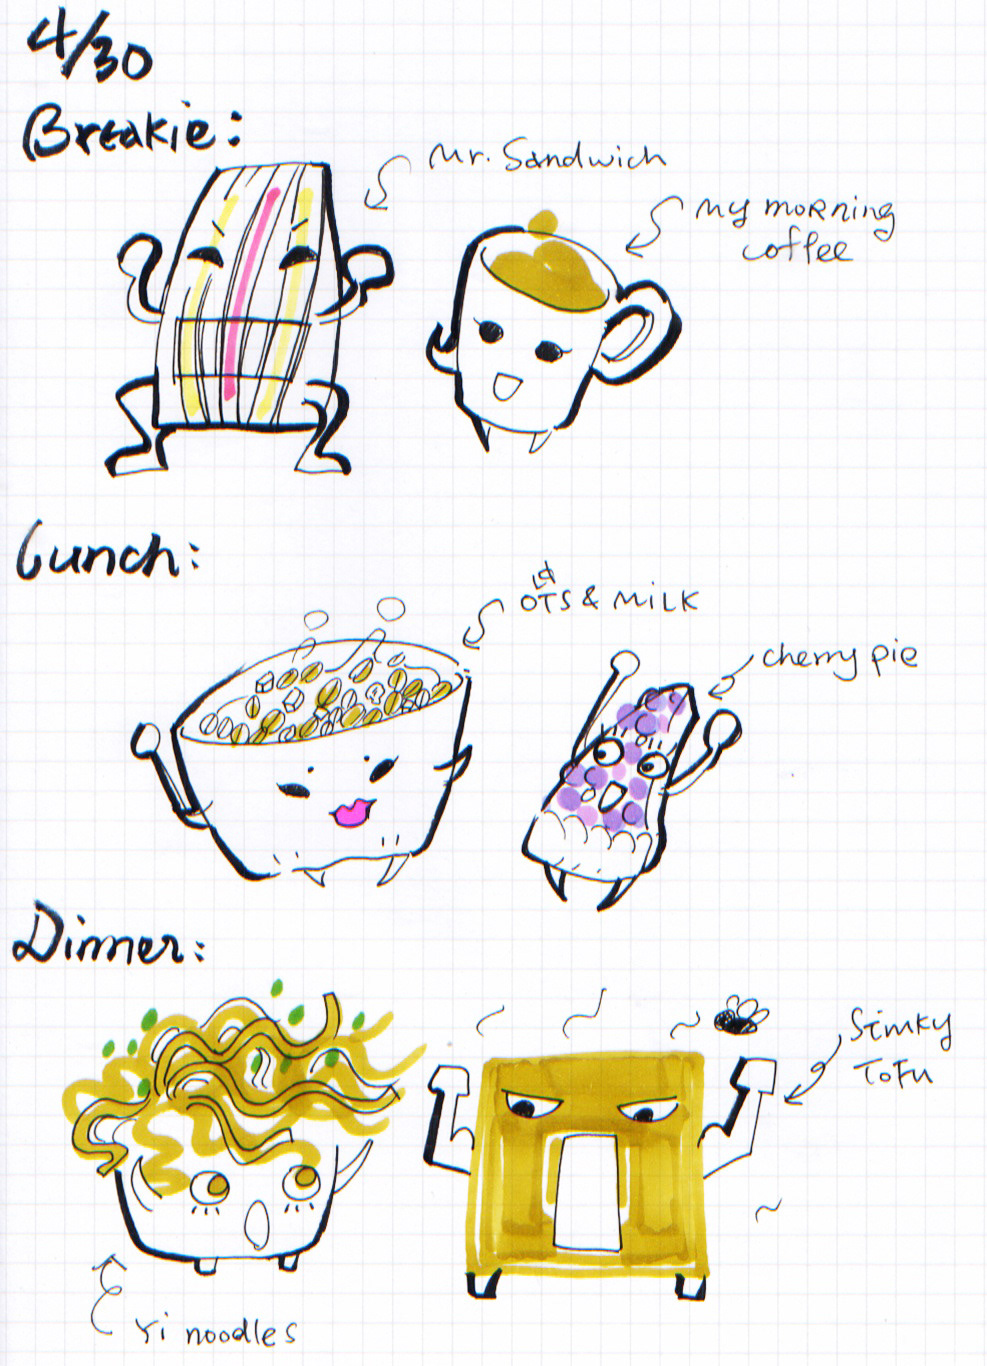 4/30
Breakie:
Mr. Sandwich
My morning
coffee
Lunch:
OaTS & MiLK
cherry pie
Dinner:
Stinky
ToFu
Yi noodles